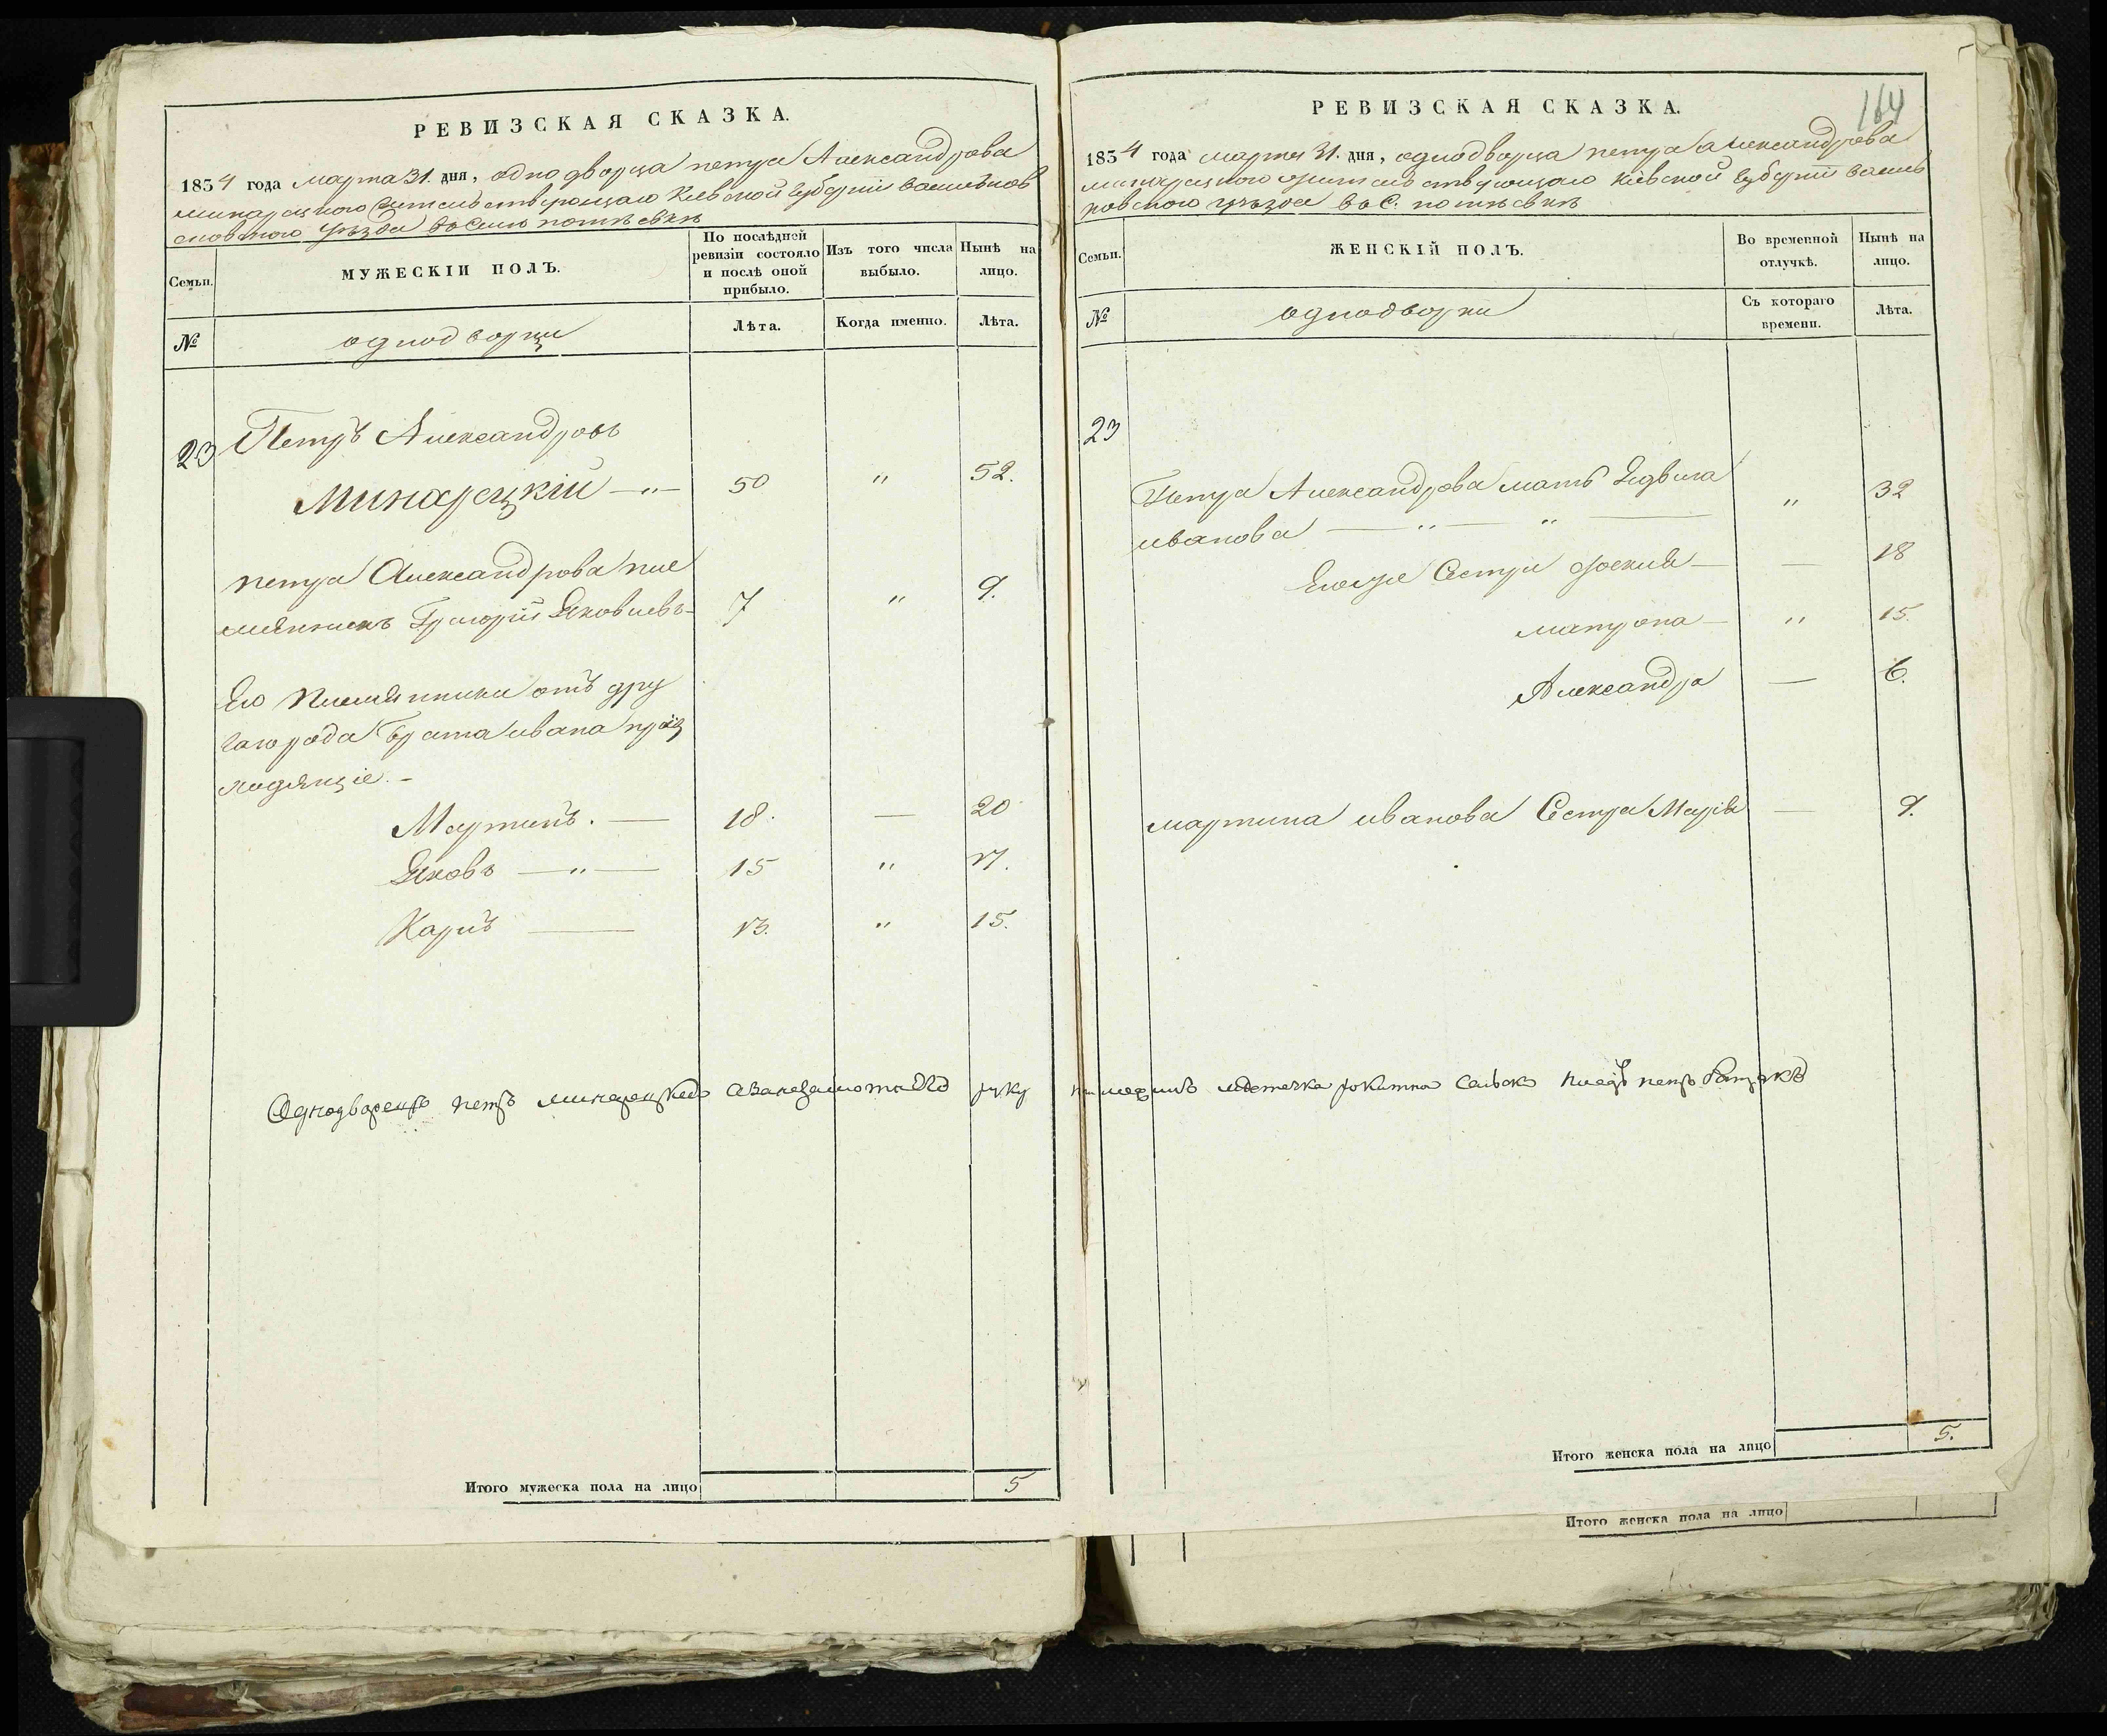 РЕВИЗСКАЯ СКАЗКА.
1834 года марта 31. дня, однодворца петра Александрова
минарецкого жительствующаго Киевской губернии васильков
сковского уѣзда въ Селѣ
Семьи.
МУЖЕСКІЙ ПОЛЪ.
По послѣдней ревизіи состояло и послѣ оной прибыло.
Изъ того числа выбыло.
Нынѣ на лицо.
№
однодворци
Лѣта.
Когда именно.
Лѣта.
23 Петръ Александровъ
Минарецкій — „ — 50 „ 52.
петра Александрова пле
мянникъ Григорій Яковлевъ — 7 „ 9.
Его племянники отъ дру
гаго рода брата ивана
ходящіе. —
Мартинъ. — 18. — 20
Яковъ — „ — 15 „ 17.
Карпъ — 13. „ 15.
Однодворецъ петръ минарецкий руку
Итого мужеска пола на лицо 5
РЕВИЗСКАЯ СКАЗКА.
164
1834 года марта 31. дня, однодворца петра александрова
минарецкого жительствующаго кіевской губерніи василь
ковского уѣзда въ С.
Семьи.
ЖЕНСКІЙ ПОЛЪ.
Во временной отлучкѣ.
Нынѣ на лицо.
№
однодворки
Съ котораго времени.
Лѣта.
23
Петра Александрова мать Ядвига
иванова — „ — „ — „ 32
Его же Сестри — — 18
матрона — „ 15.
Александра — 6.
мартина иванова Сестра Марія — 9.
местечка рокитна петръ
Итого женска пола на лицо 5.
Итого женска пола на лицо